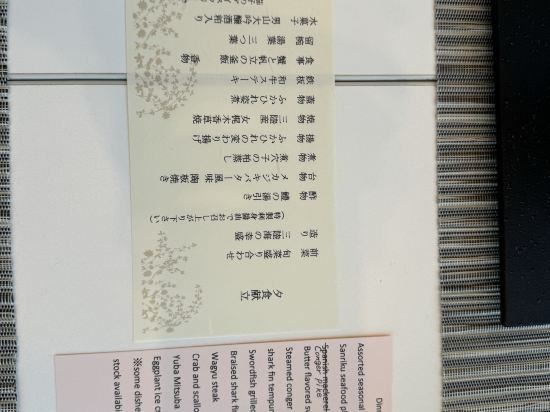 夕食献立
前菜 旬菜盛り合わせ
造り 三陸の海の幸盛
(特製刺身醤油でお召し上がり下さい)
酢物 鱧の湯引き
台物 メカジキバター風味 陶板焼き
煮穴子の 蒸し
揚物 ふかひれの変わり揚げ
焼物 三陸産 女梶木香草焼
煮物 ふかひれ姿煮
鉄板 和牛ステーキ
食事 蟹と帆立の釜飯 香物
留椀 湯葉 三つ葉
水菓子 男山大吟醸酒粕入り
Assorted seasonal
Sanriku seafood
Spanish mackerel
Conger pike
Butter flavored
Steamed conger
shark fin tempu
Swordfish grille
Braised shark fi
Wagyu steak
Crab and scallo
Yuba Mitsuba
Eggplant ice c
※some dishe
stock availabl